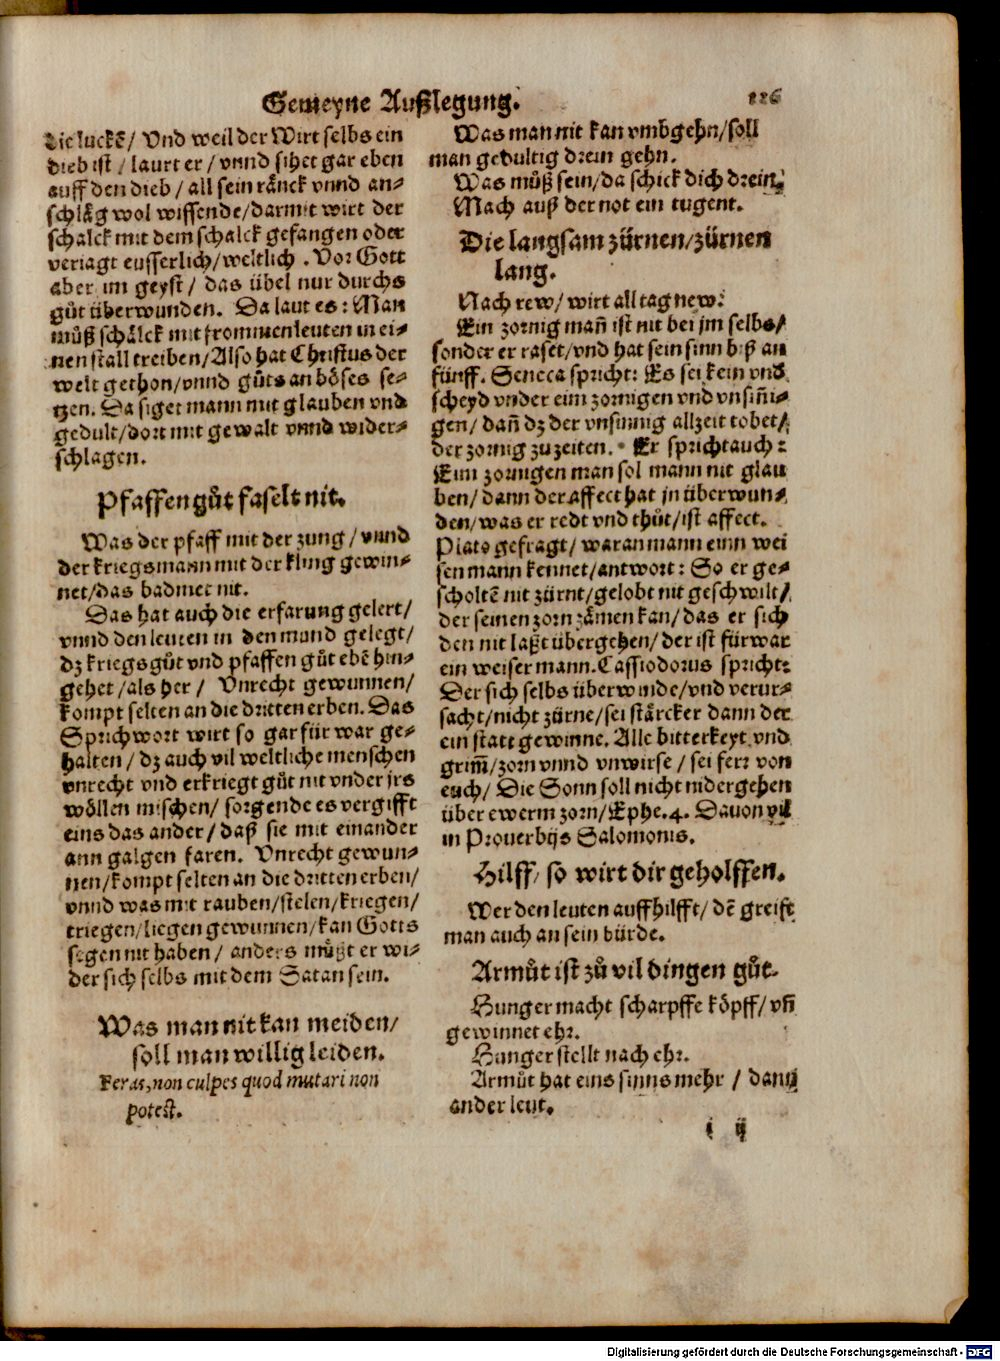 Gemeyne Außlegung.
126
die luckē/ Vnd weil der Wirt selbs ein
dieb ist / laurt er / vnnd sihet gar eben
auff den dieb / all sein ränck vnnd an-
schläg wol wissende/darmit wirt der
schalck mit dem schalck gefangen oder
veriagt eusserlich/weltlich . Vor Gott
aber im geyst / das übel nur durchs
gůt überwunden. Da laut es: Man
můß schälck mit frommen leuten in ei-
nen stall treiben/Also hat Christus der
welt gethon/vnnd gůts an böses se-
tzen. Da siget mann mit glauben vnd
gedult/dort mit gewalt vnnd wider-
schlagen.
Pfaffen gůt faselt nit.
Was der pfaff mit der zung / vnnd
der kriegsmann mit der kling gewin-
net/das badmet nit.
Das hat auch die erfarung gelert/
vnnd den leuten in den mund gelegt/
dz kriegsgůt vnd pfaffen gůt ebē hin-
gehet /als her / Vnrecht gewunnen/
kompt selten an die dritten erben. Das
Sprichwort wirt so gar für war ge-
halten / dz auch vil weltliche menschen
vnrecht vnd erkriegt gůt nit vnder jrs
wöllen mischen/ sorgende es vergifft
eins das ander/ daß sie mit einander
ann galgen faren. Vnrecht gewun-
nen/kompt selten an die dritten erben/
vnnd was mit rauben/stelen/kriegen/
triegen/liegen gewunnen/kan Gotts
segen nit haben / anders můßt er wi-
der sich selbs mit dem Satan sein.
Was man nit kan meiden/
soll man willig leiden.
Feras, non culpes quod mutari non
potest.
Was man nit kan vmbgehn/soll
man gedultig drein gehn.
Was můß sein/da schick dich drein.
Mach auß der not ein tugent.
Die langsam zürnen/zürnen
lang.
Nach rew/ wirt all tag new.
Ein zornig mañ ist nit bei jm selbs/
sonder er raset/vnd hat sein sinn biß an
fünff. Seneca spricht: Es sei kein vnd
scheyd vnder eim zornigen vnd vnsiñi-
gen/ dañ dz der vnsinnig allzeit tobet/
der zornig zuzeiten. Er spricht auch:
Eim zornigen man sol mann nit glau
ben/ dann der affect hat jn überwun-
den/was er redt vnd thůt/ist affect.
Plato gefragt/ waran mann einn wei
sen mann kennet/antwort: So er ge-
scholtē nit zürnt/gelobt nit geschwilt/
der seinen zorn zämen kan/das er sich
den nit laßt übergehen/ der ist fürwar
ein weiser mann. Cassiodorus spricht:
Der sich selbs überwinde/vnd verur-
sacht/nicht zürne/sei stärcker dann der
ein statt gewinne. Alle bitterkeyt vnd
grim̃/zorn vnnd vnwirse / sei ferr von
euch/ Die Sonn soll nicht nidergehen
über ewerm zorn/Ephe.4. Dauon vil
in Prouerbijs Salomonis.
Hilff/ so wirt dir geholffen.
Wer den leuten auffhilfft/ dē greifft
man auch an sein bürde.
Armůt ist zů vil dingen gůt.
Hunger macht scharpffe köpff/ vñ
gewinnet ehr.
Hunger stellt nach ehr.
Armůt hat eins sinns mehr / dann
ander leut.
i ij
Digitalisierung gefördert durch die Deutsche Forschungsgemeinschaft - DFG